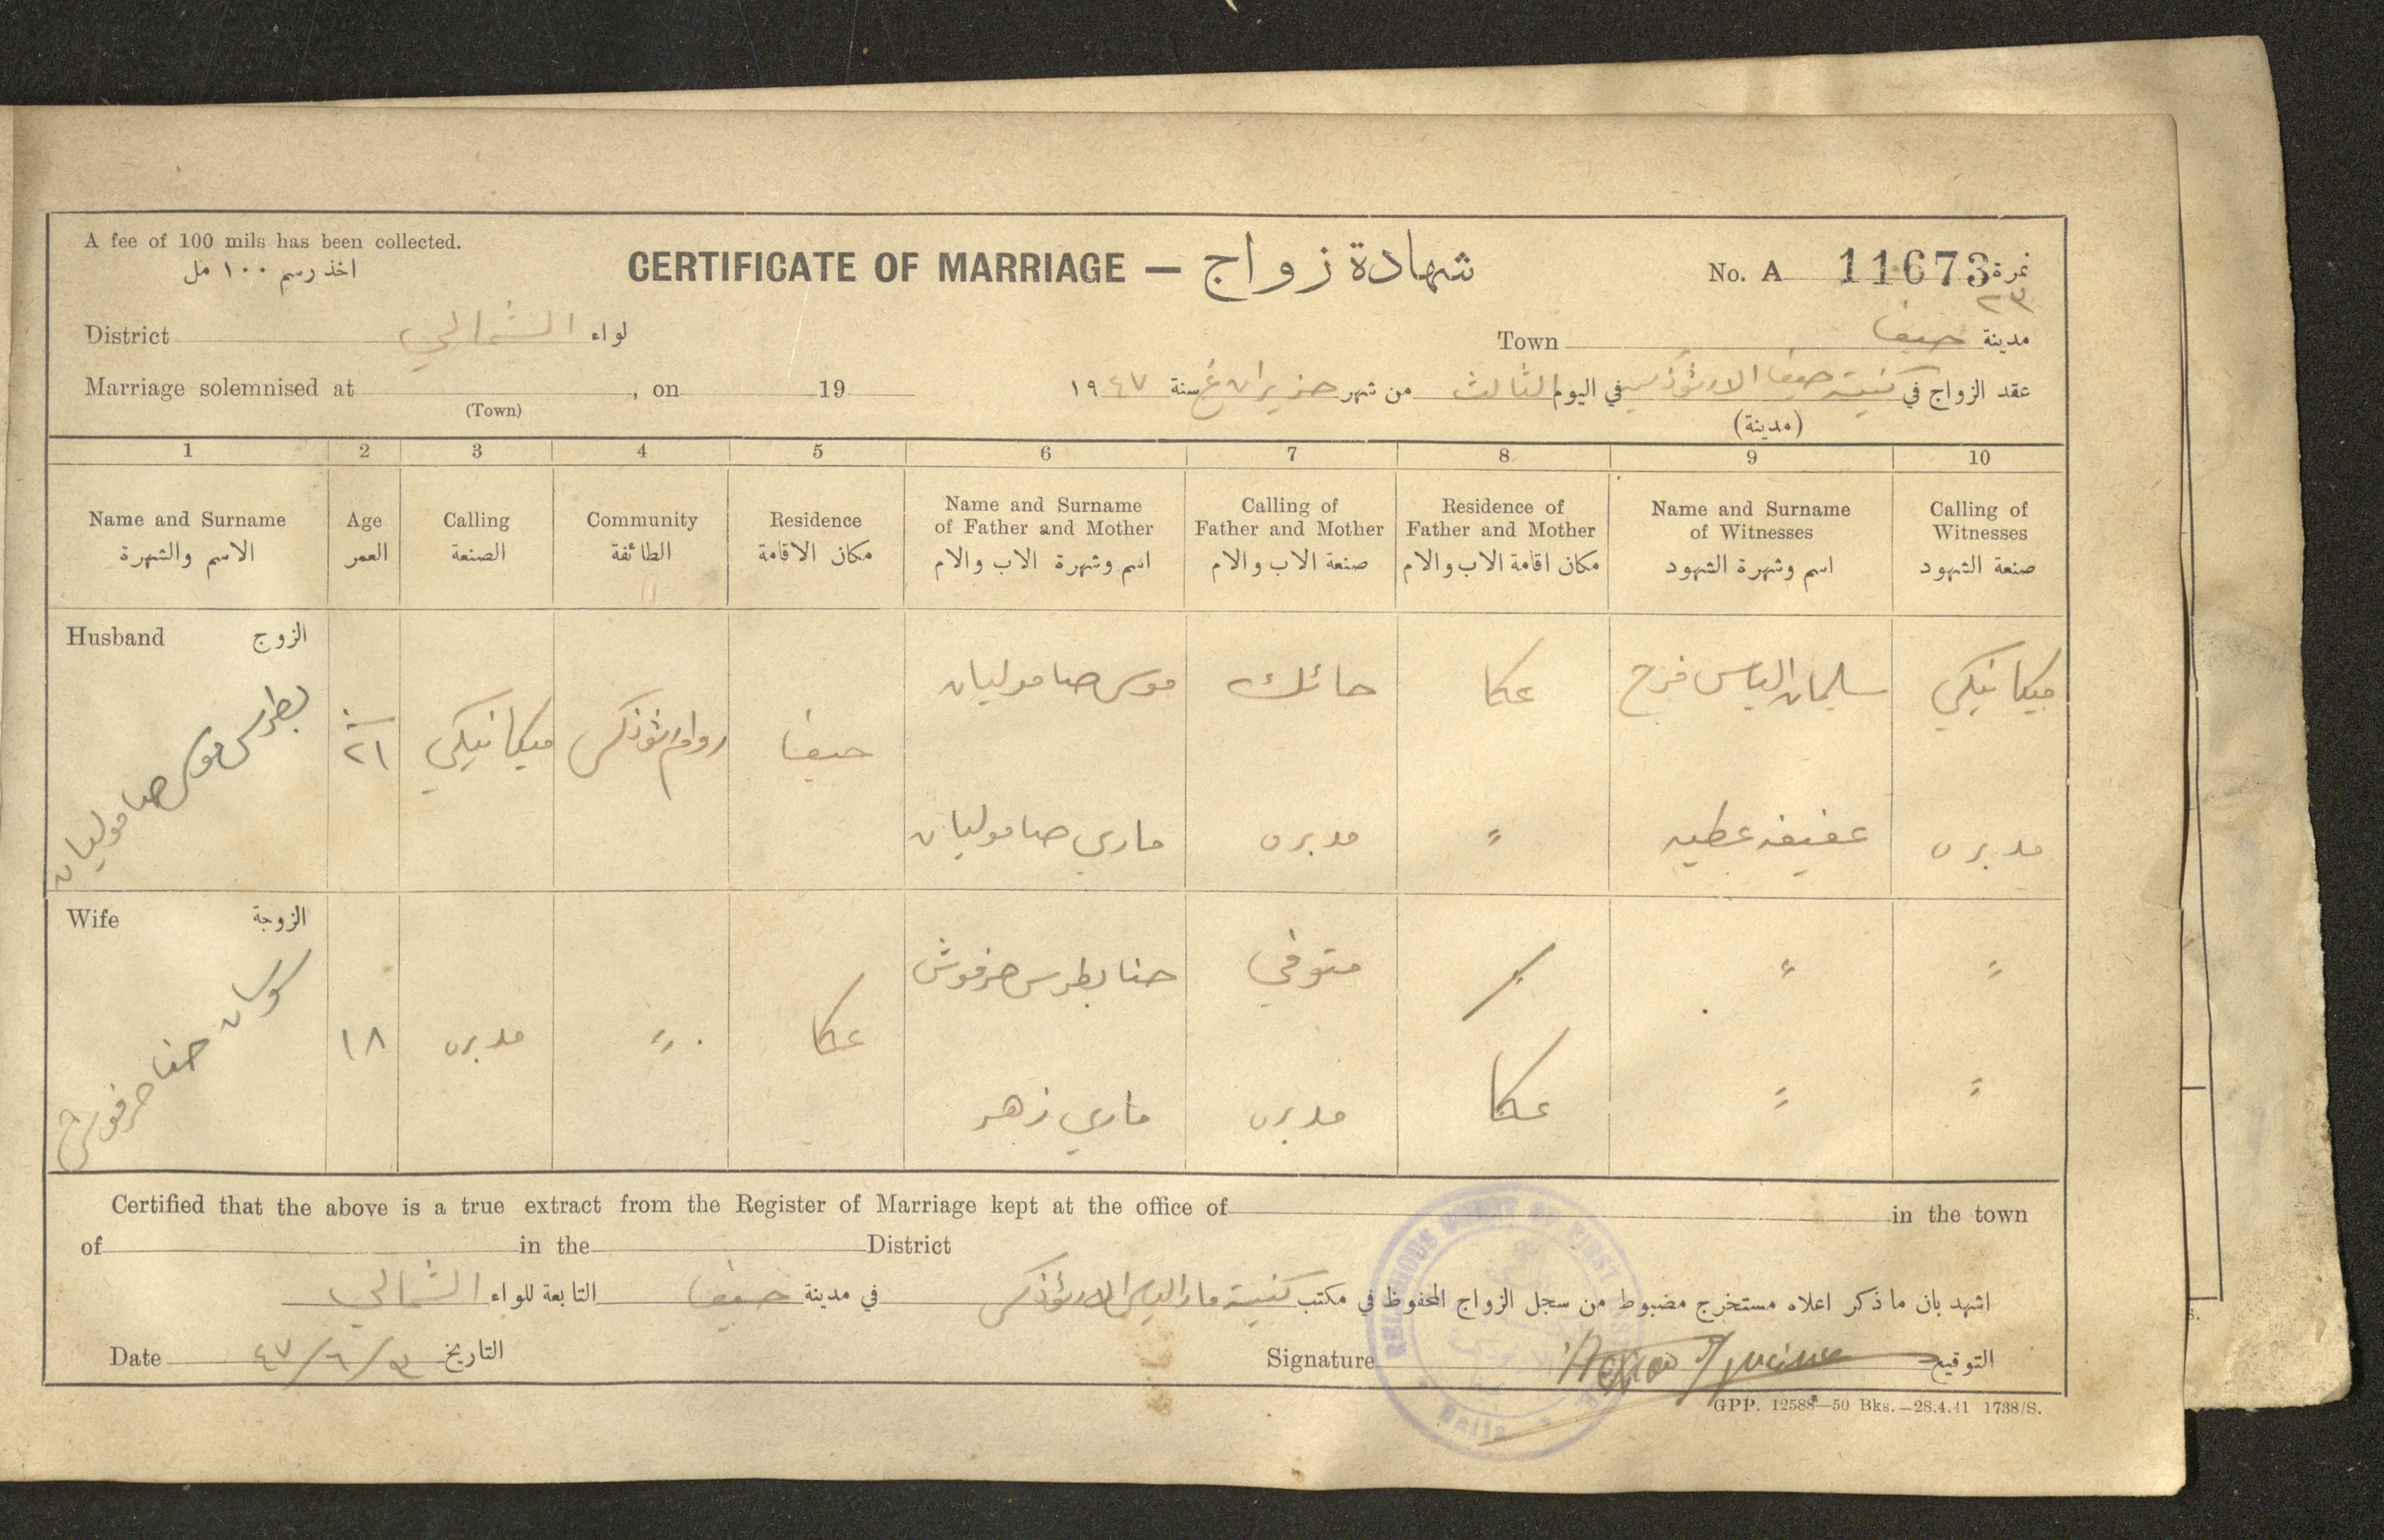 A fee of 100 mils has been collected.
اخذ رسم ١٠٠ مل
CERTIFICATE OF MARRIAGE — شهادة زواج
No. A 11673 نمرة
٢٣
District الشمالي لواء
Town حيفا مدينة
Marriage solemnised at , on 19
(Town)
عقد الزواج في كنيسة حيفا الارثوذكسية في اليوم الثالث من شهر حزيران سنة ١٩٤٧
(مدينة)
1 2 3 4 5 6 7 8 9 10
Name and Surname
الاسم والشهرة
Age
العمر
Calling
الصنعة
Community
الطائفة
Residence
مكان الاقامة
Name and Surname
of Father and Mother
اسم وشهرة الاب والام
Calling of
Father and Mother
صنعة الاب والام
Residence of
Father and Mother
مكان اقامة الاب والام
Name and Surname
of Witnesses
اسم وشهرة الشهود
Calling of
Witnesses
صنعة الشهود
Husband الزوج
بطرس موسى صاموليان
٢١
ميكانيكي
روم ارثوذكس
حيفا
موسى صاموليان
حائك
عكا
سليمان الياس فرح
ميكانيكي
ماري صاموليان
مدبره
"
عفيفه عطيه
مدبره
Wife الزوجة
سوسان حنا حرفوش
١٨
مدبره
"
عكا
حنا بطرس حرفوش
متوفي
"
"
ماري زهر
مدبره
عكا
"
"
Certified that the above is a true extract from the Register of Marriage kept at the office of in the town
of in the District
اشهد بان ما ذكر اعلاه مستخرج مضبوط من سجل الزواج المحفوظ في مكتب كنيسة مار الياس الارثوذكس في مدينة حيفا التابعة للواء الشمالي
Date ٣/٦/٤٧ التاريخ
Signature التوقيع
RELIGIOUS COURT OF FIRST
Haifa
GPP. 12588—50 Bks.—28.4.41 1738/S.